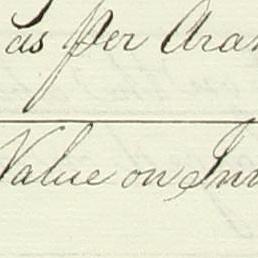 as per Aran
Value on Inv